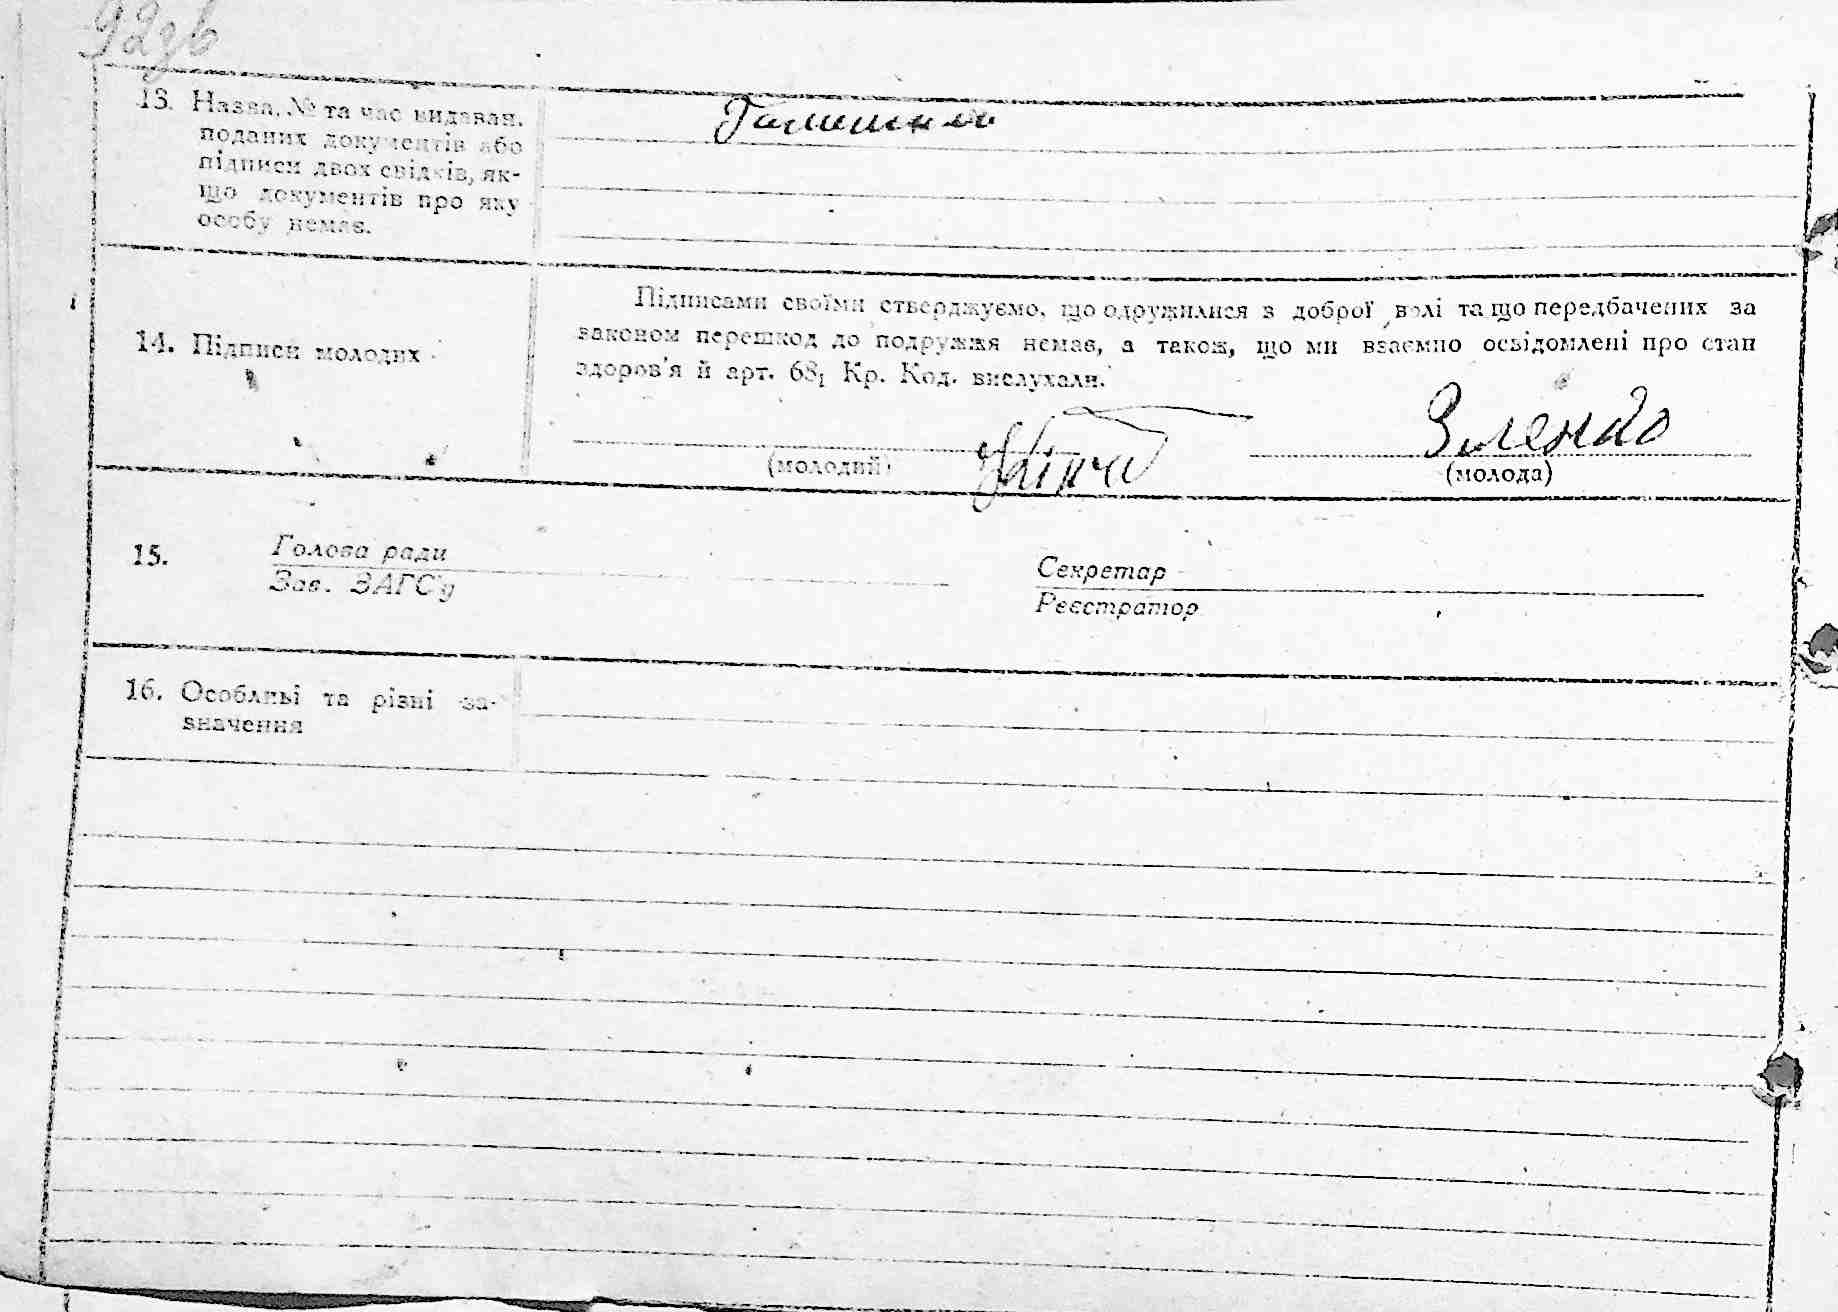 92зв
13. Назва, № та час видаван.
поданих документів або
підписи двох свідків, як-
що документів про яку
особу немає.
14. Підписи молодих
Підписами своїми стверджуємо, що одружилися з доброї волі та що передбачених за
законом перешкод до подружжя немає, а також, що ми взаємно освідомлені про стан
здоров'я й арт. 68₁ Кр. Код. вислухали.
(молодий)
(молода)
15.
Голова ради
Зав. ЗАГС'у
Секретар
Реєстратор
16. Особливі та різні за-
значення